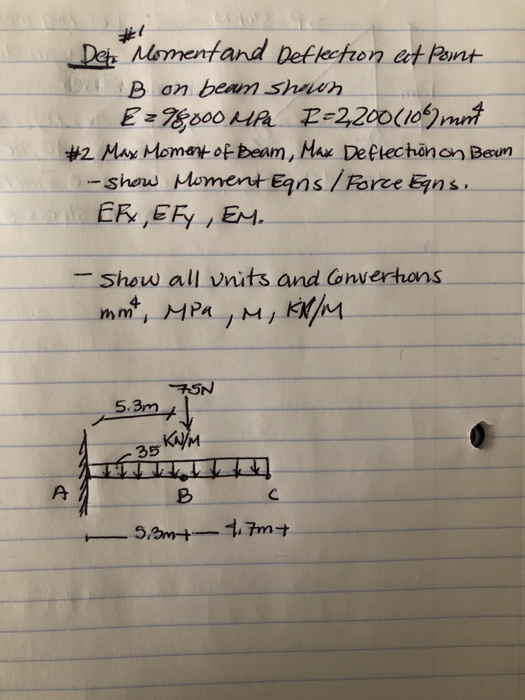 #1
Det. Moment and Deflection at Point
B on beam shown
E = 98,000 MPa I = 2,200(10⁶) mm⁴
#2 Max Moment of Beam, Max Deflection on Beam
- show Moment Eqns / Force Eqns.
EFx, EFy, EM.
- show all units and Convertions
mm⁴, MPa, M, KN/M
75N
5.3m
35 KN/M
A B C
5.3m